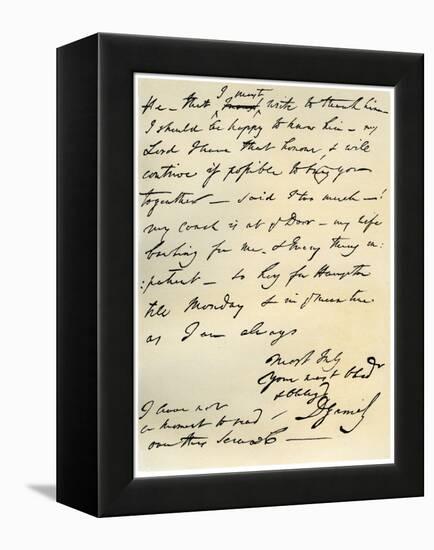 He - that I must write to thank him
I should be happy to know him - my
Lord I have that honour, & will
contrive if possible to bring you
together - said I too much - !
my coach is at ye Door - my Wife
bawling for me, & Every thing im:
:patient - so Hey for Hampton
till Monday & in ye mean time
as I am always
most truly
Your most Obedt
& Oblig'd
D Garrick
I have not
a moment to read
over this Scrawl